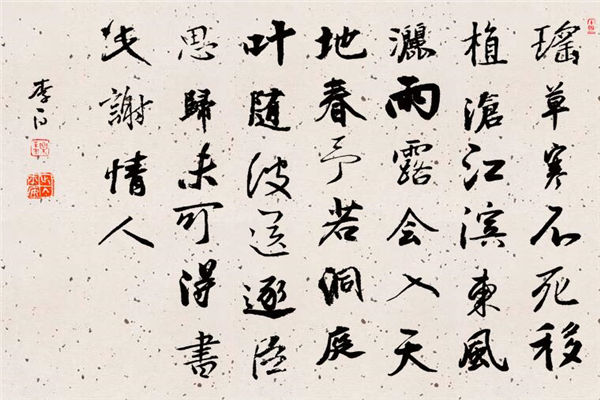 瑶草寒不死移
植滄江滨東風
灑雨露会入天
地春予若洞庭
叶随波送逐臣
思歸未可得書
此謝情人
李白